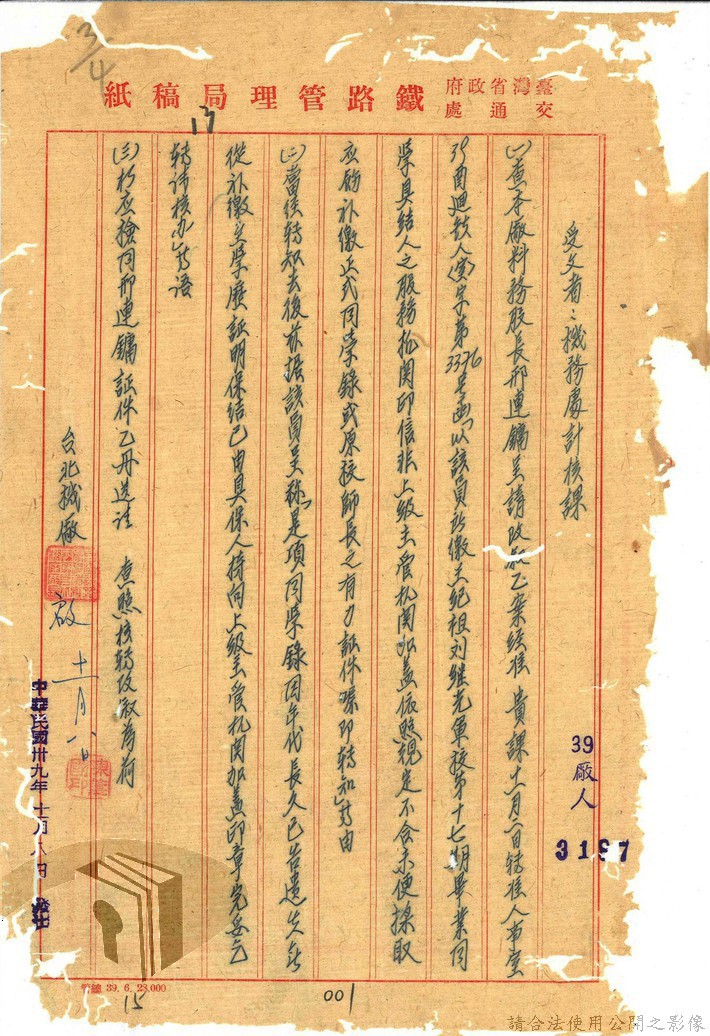 3/4
臺灣省政府交通處
鐵路管理局稿紙
13
受文者：機務處計核課
39
廠人
3197
(一)查本廠料務股長邢連鏞呈請改敘乙案經准 貴課十一月一日轉准人事室
39酉迴技人(室)字第3376号函「以該員所繳王紀祖刘継光軍校第十七期畢業同
學具結人之服務机関印信非上級主管机関加盖依照規定不合未便採取
应飭补繳正式同學錄或原校師長之有力証件囑即轉知」等由
(二)當經轉知去後茲據該員呈称「是項同學錄因年代長久已告遺失無
從补繳至學歷証明保結已由具保人持向上級主管机関加盖印章完妥乞
轉請核办」等語
(三)相应檢同邢連鏞証件乙冊送請 查照核轉改敘為荷
台北機廠
啟 十一月八日
中華民國卅九年 十一月八日 發出
管總 39. 6. 28.000
15
001
請合法使用公開之影像